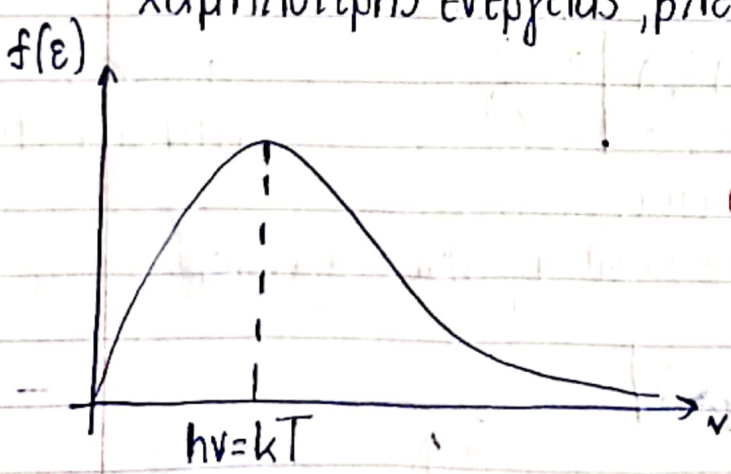 χαμηλότερης ενέργειας,
f(ε)
hν=kT
ν